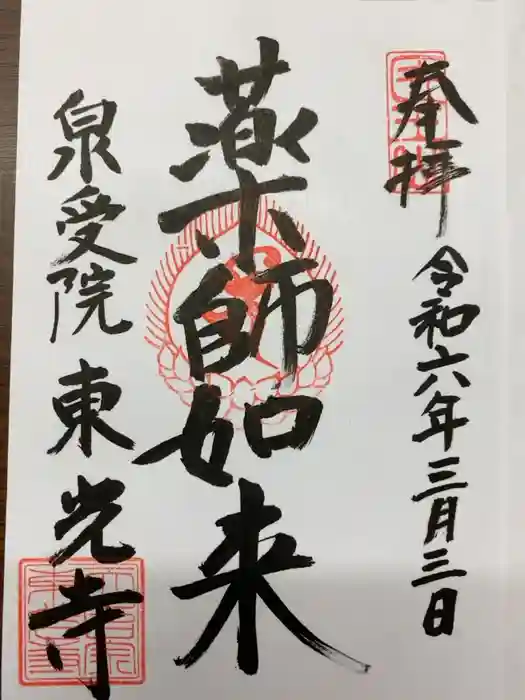 奉拝
令和六年三月三日
薬師如来
泉受院
東光寺